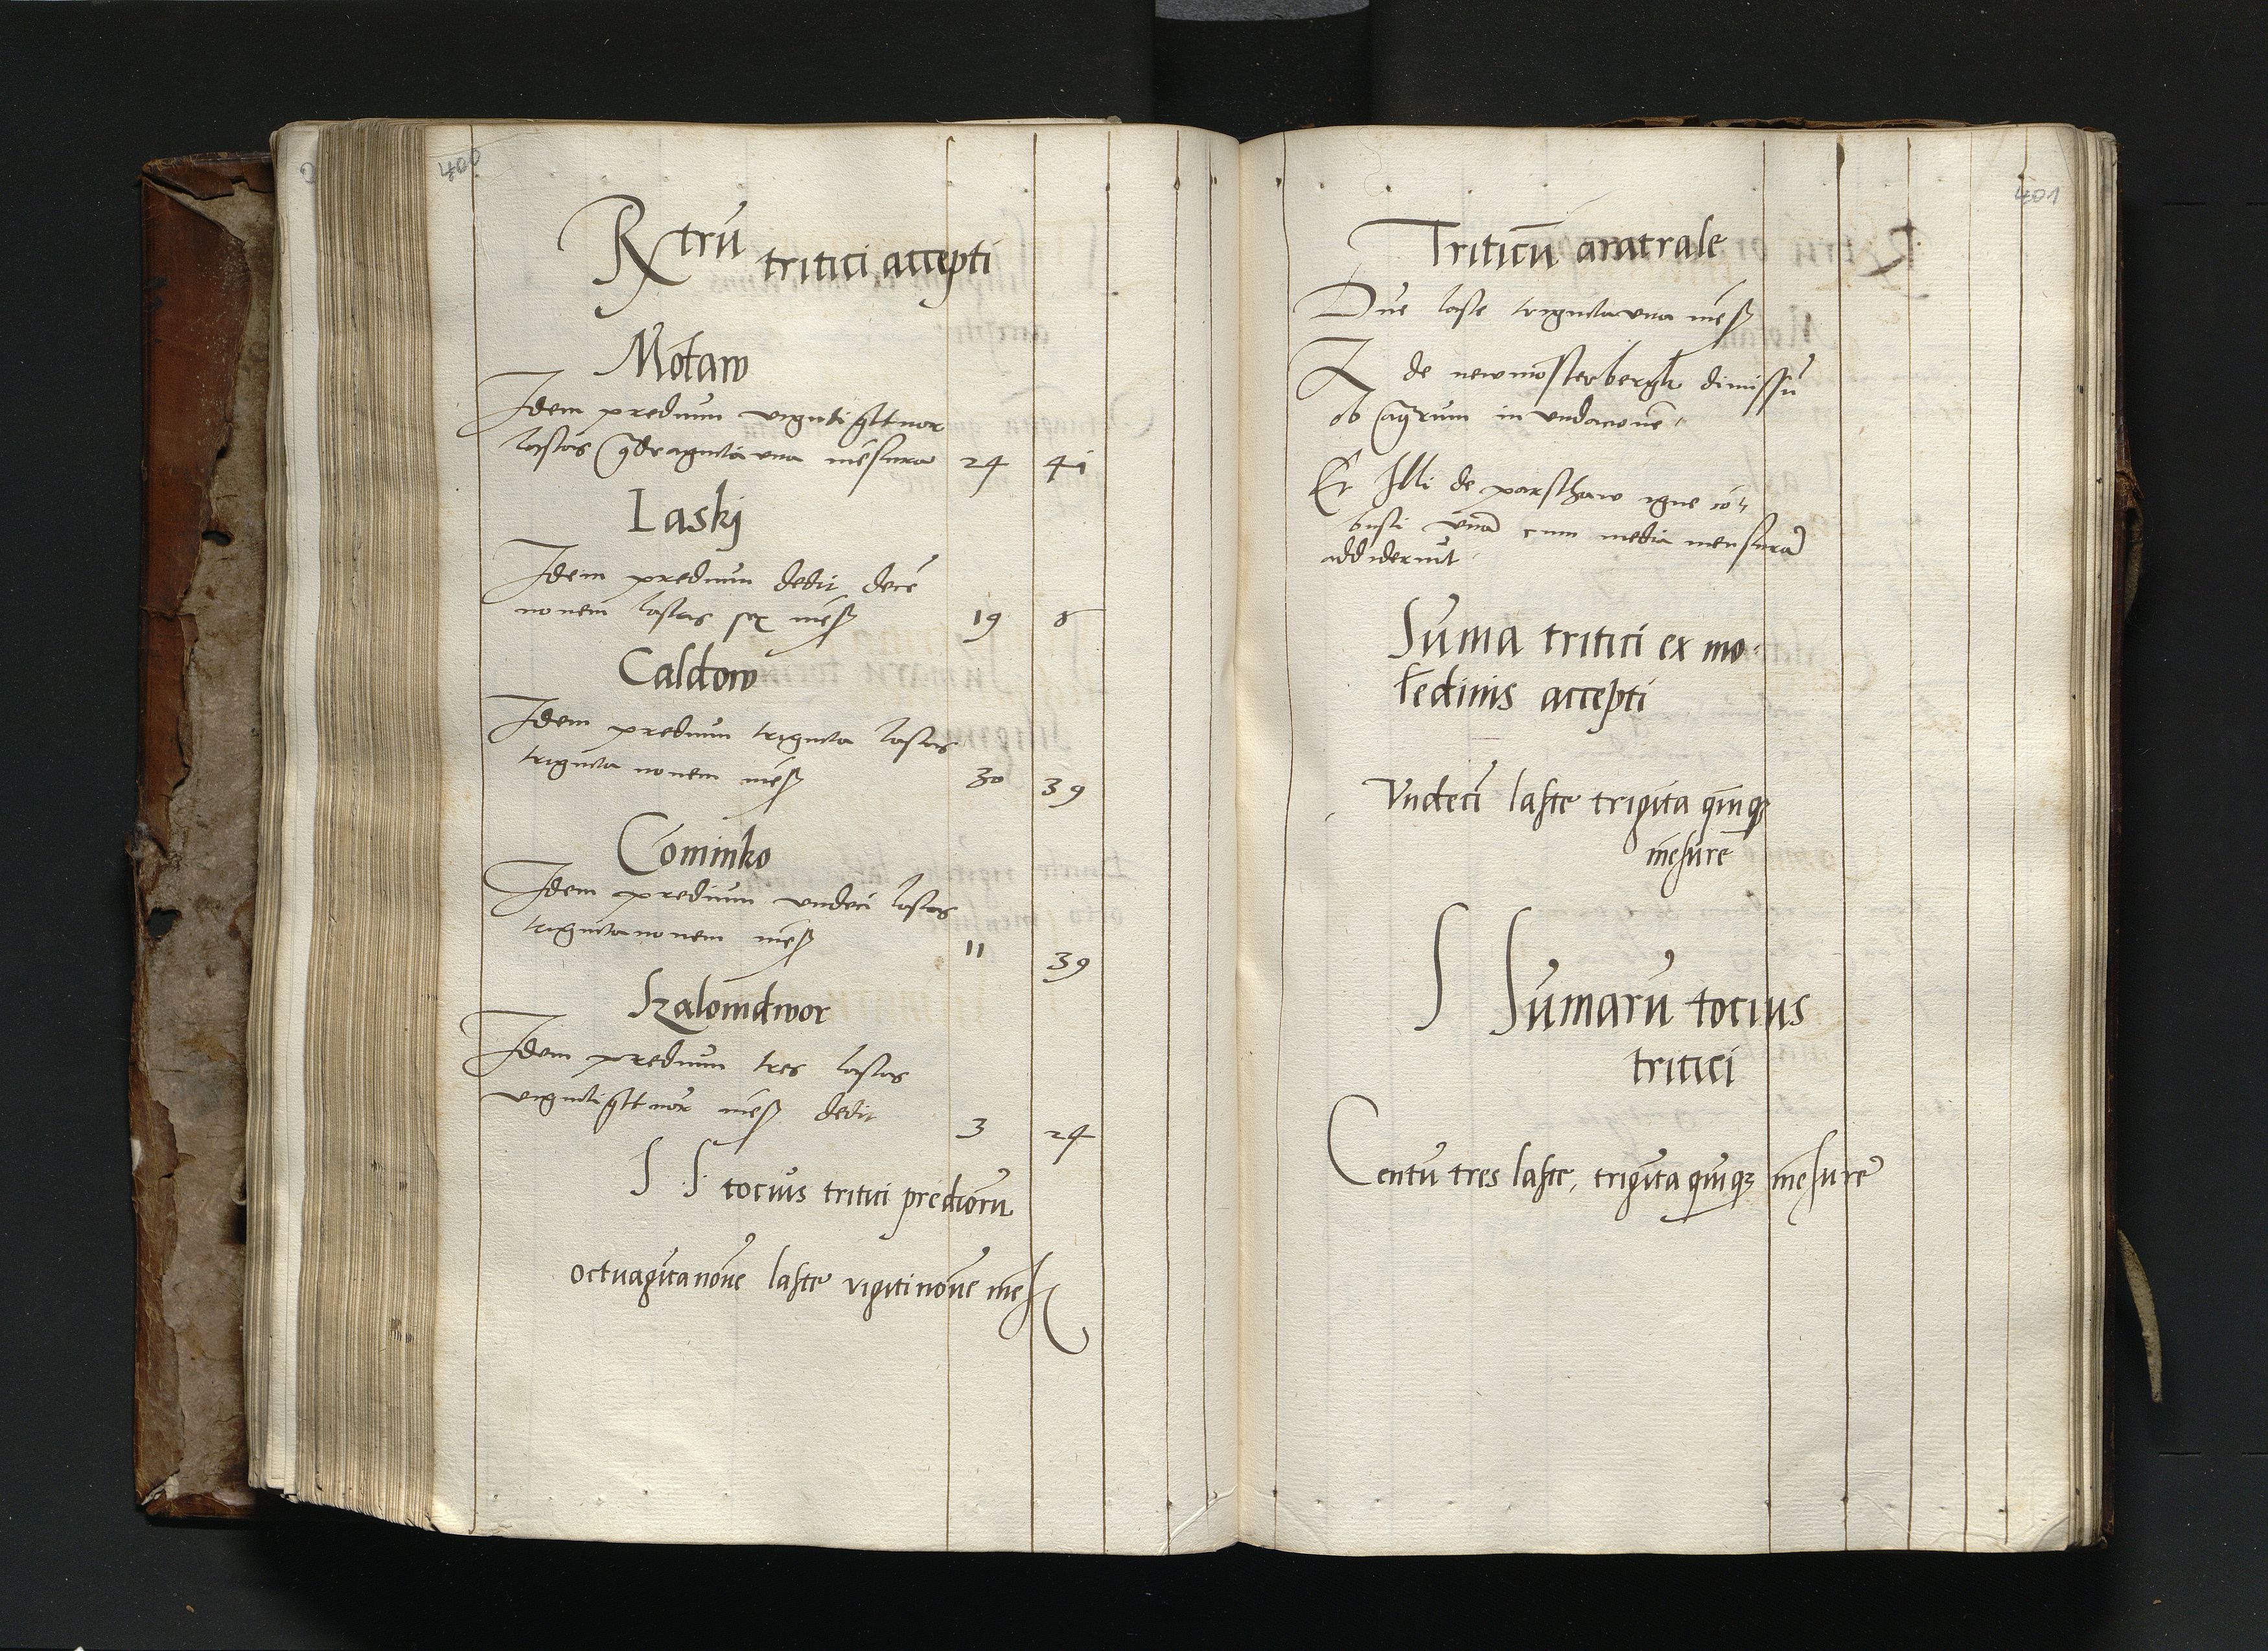 400
Rxtrū tritici accepti
Motaw
Idem predium vigintiqttuor
lastas qdragintavna mēsura 24 41
Laskj
Idem predium dedit decē
novem lastas sex mēs 19 6
Caldow
Idem predium triginta lastas
triginta novem mēs 30 39
Cominko
Idem predium vndeci lastas
trigintanovem mēs 11 39
Szalomdwor
Idem predium tres lastas
vigintiqttuor mēs dedit 3 24
S S tocius tritici predioru
octuagītanoue laste vigītinoue mēs
401
Triticū aratrale
Due laste trigintavna mēs
de newmosterbergk dimissū
ob agrum inundacionē
Et Illi de parschaw igne cō-
busti vnā cum media mensurā
addiderūt
Sūma tritici ex mo-
ledinis accepti
Vndeci laste trigīta qinqz
mēsure
S Sūmarū tocius
tritici
Centū tres laste, trigīta qinqz mēsure